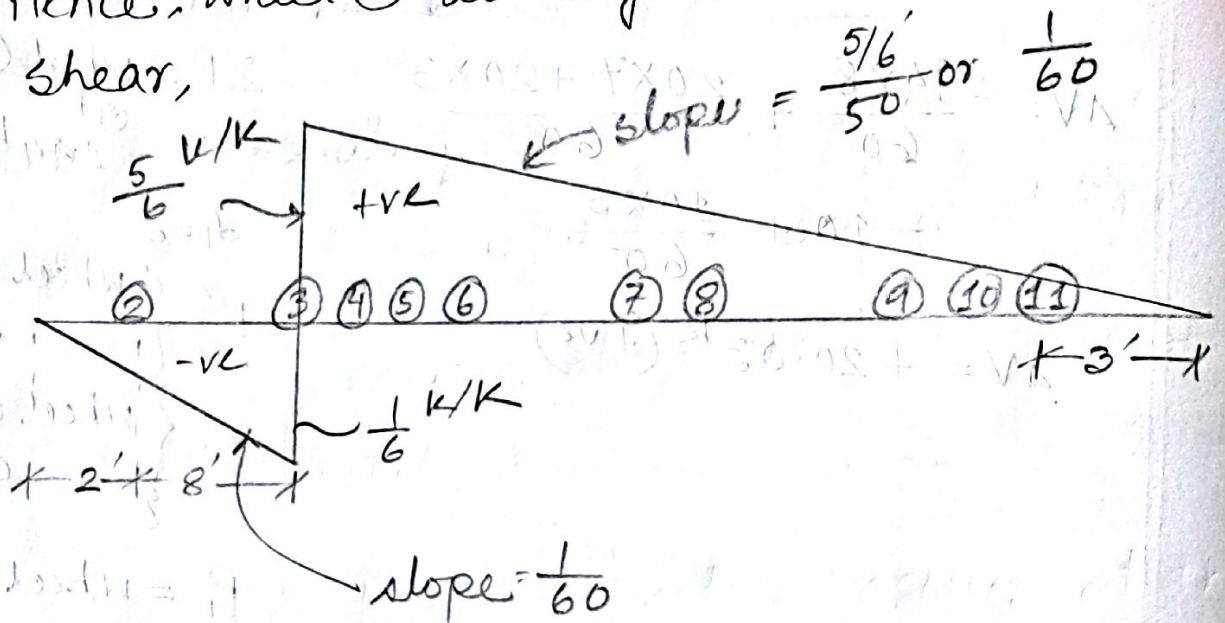 shear,
slope = 5/6 / 50 or 1/60
5/6 K/K
+ve
② ③ ④ ⑤ ⑥ ⑦ ⑧ ⑨ ⑩ ⑪
-ve
3'
1/6 K/K
2' 8'
slope = 1/60